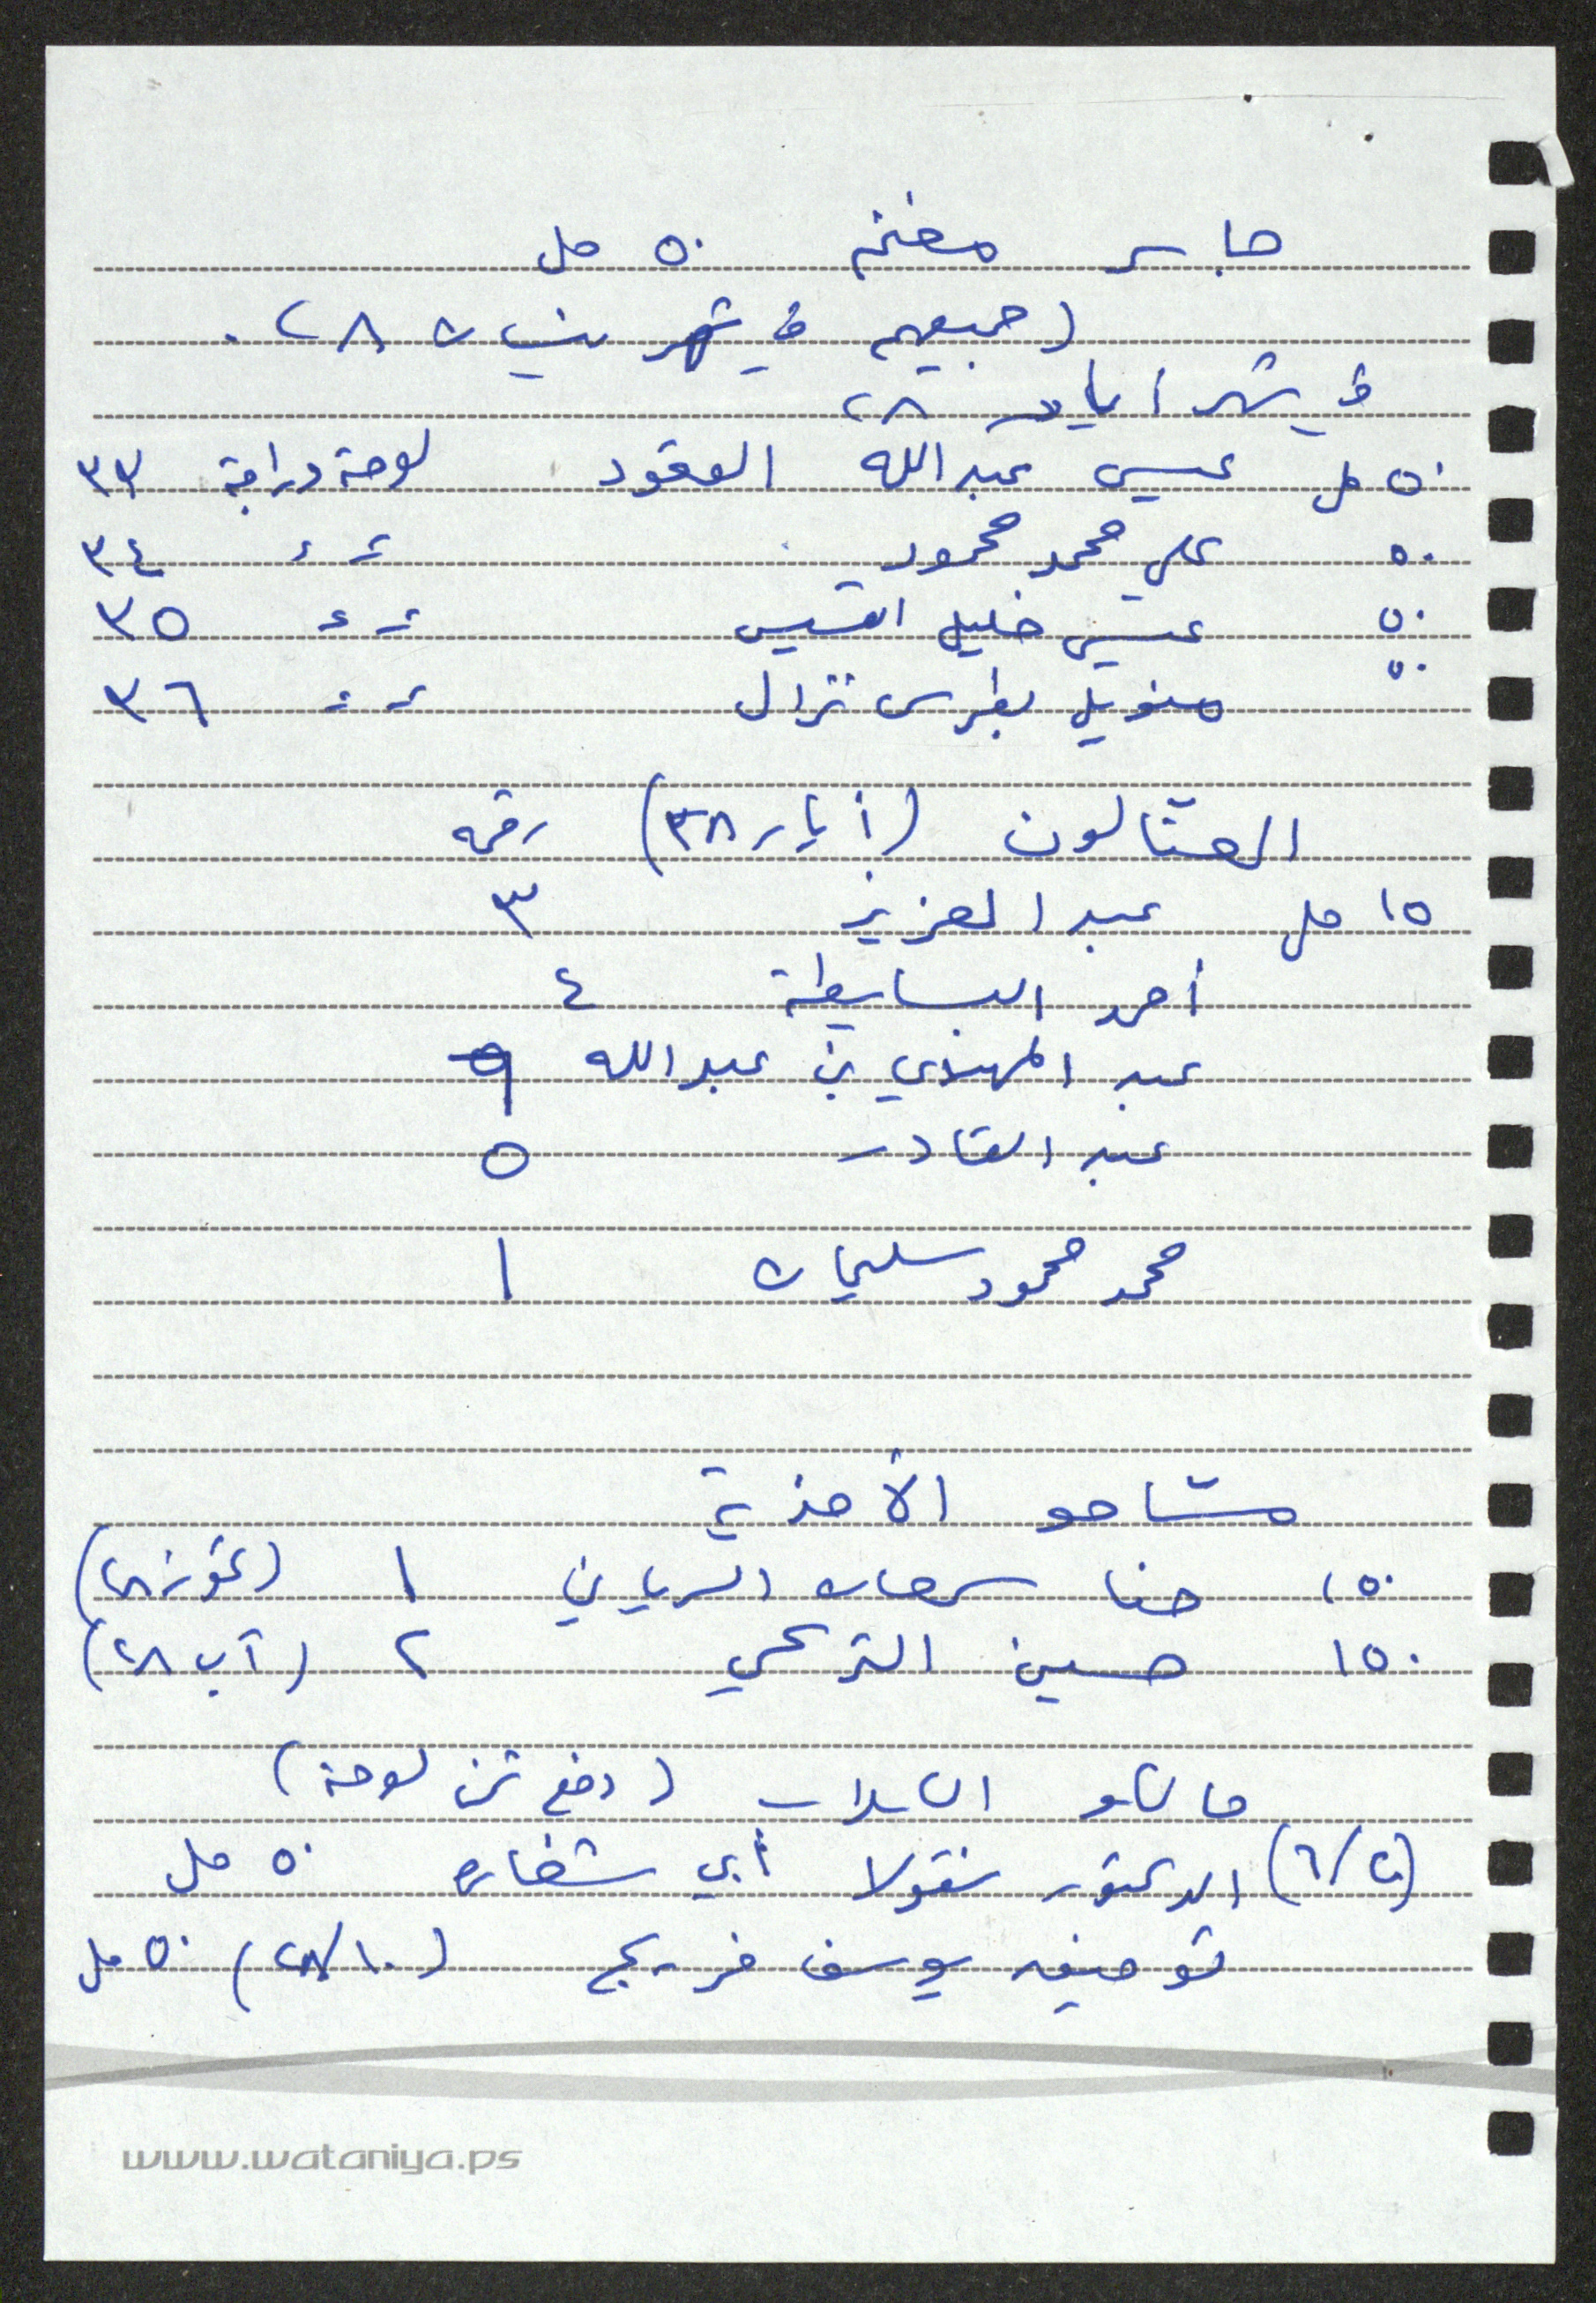 جابر مغنم ٥٠ مل
(جميعهم في شهر نيسان ٢٨).
في شهر أيار ٢٨
٥٠ مل عيسى عبدالله العقود لوحة دراجة ٣٣
٥٠ علي محمد محمود ٣٤
٥٠ عيسى خليل القسيس ٣٥
٥٠ منويل بطرس نزال ٣٦
العتالون (أيار ٣٨) رقمه
١٥ مل عبد العزيز ٣
أحمد البسايطة ٤
عبد المهدي بن عبدالله ٩
عبد القادر ٥
محمد محمود سليمان ١
مساحو الأحذية
١٥٠ حنا سمعان السرياني ١ (تموز ٢٨)
١٥٠ حسين الترتحي ٢ (آب ٢٨)
مالكو الكلاب (دفع ثمن لوحة)
الدكتور نقولا أبي شعار ٥٠ مل
توفيق يوسف فريج (٢٨/١٠) ٥٠ مل
www.wataniya.ps